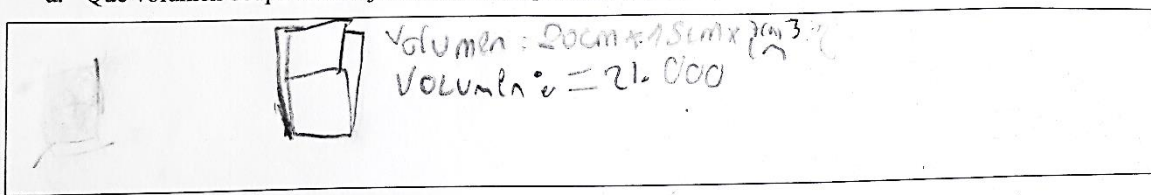 Volumen: 20cm x 15cm x
Volumen: = 21.000